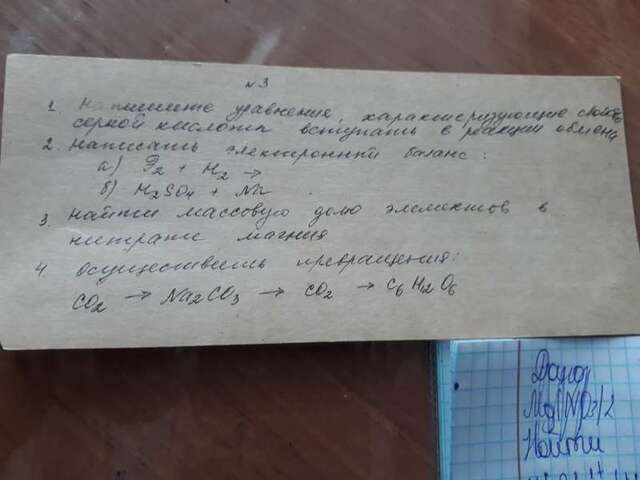 №3
1. Напишите уравнение, характеризующие свойств
серной кислоты вступать в реакции обмена
2. Написать электронный баланс:
а) F2 + H2 →
б) H2SO4 + Na
3. Найти массовую долю элементов в
нитрате магния
4. Осуществить превращения:
CO2 → Na2CO3 → CO2 → C6H2O6
Дано
Mg(NO3)2
Найти